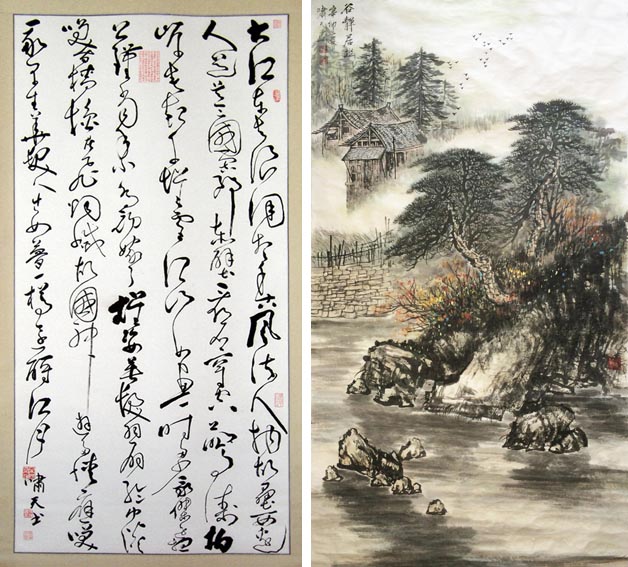 大江东去浪淘尽千古风流人物故垒西边
人道是三國周郎赤壁乱石穿空惊涛拍
岸卷起千堆雪江山如画一时多少豪杰遥想
公瑾当年小乔初嫁了雄姿英发羽扇纶巾谈
笑间樯橹灰飞烟灭故國神游多情应笑
我早生华发人生如梦一樽还酹江月
啸天书
谷静居
辛卯
啸天